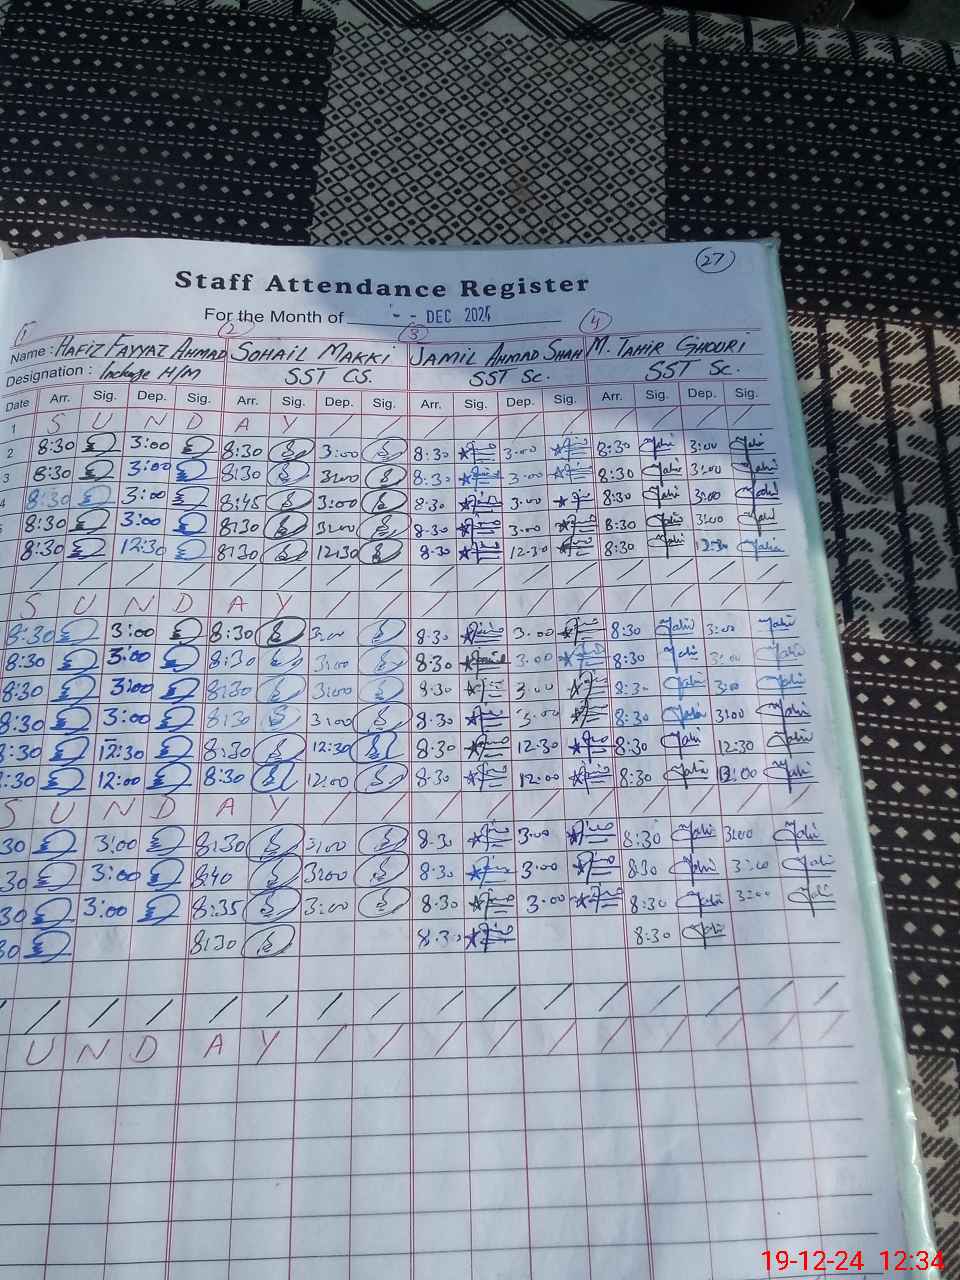 27
Staff Attendance Register
For the Month of DEC 2024
1 2 3 4
Name : HAFIZ FAYYAZ AHMAD SOHAIL MAKKI JAMIL AHMAD SHAH M. TAHIR GHOURI
Designation : Incharge H/M SST CS. SST Sc. SST Sc.
Date Arr. Sig. Dep. Sig. Arr. Sig. Dep. Sig. Arr. Sig. Dep. Sig. Arr. Sig. Dep. Sig.
1 S U N D A Y / / / / / / / / / /
2 8:30 3:00 8:30 3:00 8:30 3:00 8:30 3:00
3 8:30 3:00 8:30 3:00 8:30 3:00 8:30 3:00
4 8:30 3:00 8:45 3:00 8:30 3:00 8:30 3:00
5 8:30 3:00 8:30 3:00 8:30 3:00 8:30 3:00
8:30 12:30 8:30 12:30 8:30 12:30 8:30 12:30
/ / / / / / / / / / / / / / / /
S U N D A Y / / / / / / / / / /
8:30 3:00 8:30 3:00 8:30 3:00 8:30 3:00
8:30 3:00 8:30 3:00 8:30 3:00 8:30 3:00
8:30 3:00 8:30 3:00 8:30 3:00 8:30 3:00
8:30 3:00 8:30 3:00 8:30 3:00 8:30 3:00
8:30 12:30 8:30 12:30 8:30 12:30 8:30 12:30
:30 12:00 8:30 12:00 8:30 12:00 8:30 12:00
S U N D A Y / / / / / / / / / /
30 3:00 8:30 3:00 8:30 3:00 8:30 3:00
30 3:00 8:40 3:00 8:30 3:00 8:30 3:00
30 3:00 8:35 3:00 8:30 3:00 8:30 3:00
30 8:30 8:30 8:30
/ / / / / / / / / / / / / / / /
U N D A Y / / / / / / / / / /
19-12-24 12:34